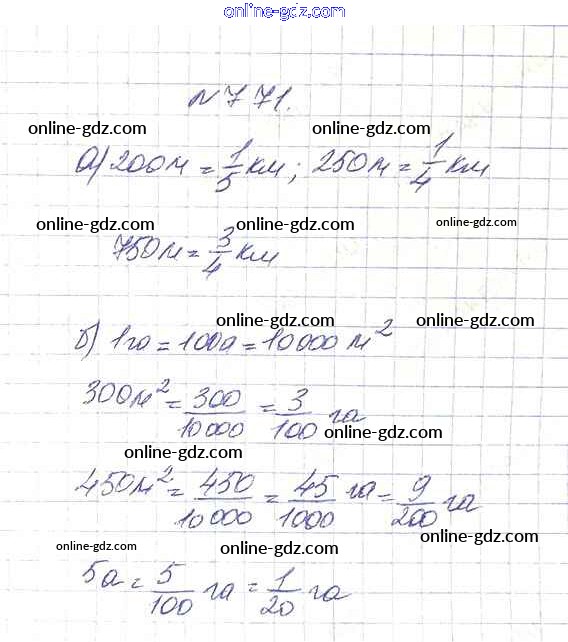 online-gdz.com
№771.
online-gdz.com online-gdz.com
а) 200м = 1/5 км; 250м = 1/4 км
online-gdz.com online-gdz.com online-gdz.com
750м = 3/4 км
online-gdz.com online-gdz.com
б) 1га = 100а = 10000 м²
online-gdz.com online-gdz.com
300м² = 300/10000 = 3/100 га
online-gdz.com
online-gdz.com
450м² = 450/10000 = 45/1000 га = 9/200 га
online-gdz.com online-gdz.com online-gdz.com
5а = 5/100 га = 1/20 га
online-gdz.com online-gdz.com